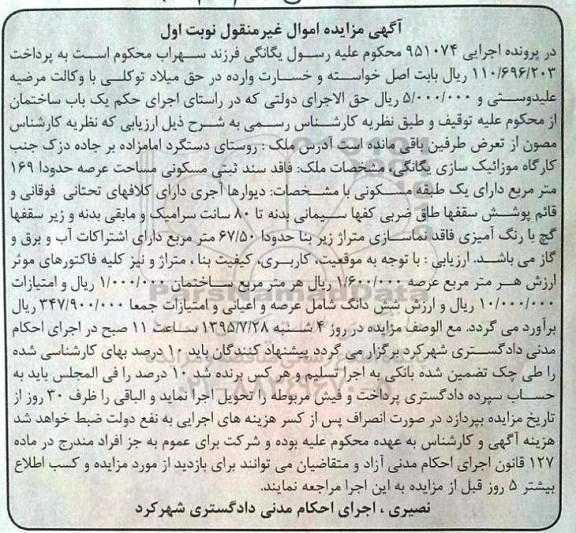 آگهی مزایده اموال غیرمنقول نوبت اول
در پرونده اجرایی ۹۵۱۰۷۴ محکوم علیه رسول یگانگی فرزند سهراب محکوم است به پرداخت
۱۱۰/۶۹۶/۲۰۳ ریال بابت اصل خواسته و خسارت وارده در حق میلاد توکلی با وکالت مرضیه
علیدوستی و ۵/۰۰۰/۰۰۰ ریال حق الاجرای دولتی که در راستای اجرای حکم یک باب ساختمان
از محکوم علیه توقیف و طبق نظریه کارشناس رسمی به شرح ذیل ارزیابی که نظریه کارشناس
مصون از تعرض طرفین باقی مانده است آدرس ملک : روستای دستگرد امامزاده بر جاده دزک جنب
کارگاه موزائیک سازی یگانگی، مشخصات ملک: فاقد سند ثبتی مسکونی مساحت عرصه حدودا ۱۶۹
متر مربع دارای یک طبقه مسکونی با مشخصات: دیوارها آجری دارای کلافهای تحتانی فوقانی و
قائم پوشش سقفها طاق ضربی کفها سیمانی بدنه تا ۸۰ سانت سرامیک و مابقی بدنه و زیر سقفها
گچ با رنگ آمیزی فاقد نماسازی متراژ زیر بنا حدودا ۶۷/۵۰ متر مربع دارای اشتراکات آب و برق و
گاز می باشد. ارزیابی : با توجه به موقعیت، کاربری، کیفیت بنا ، متراژ و نیز کلیه فاکتورهای موثر
ارزش هر متر مربع عرصه ۱/۶۰۰/۰۰۰ ریال هر متر مربع ساختمان ۱/۰۰۰/۰۰۰ ریال و امتیازات
۱۰/۰۰۰/۰۰۰ ریال و ارزش شش دانگ شامل عرصه و اعیانی و امتیازات جمعا ۳۴۷/۹۰۰/۰۰۰ ریال
برآورد می گردد. مع الوصف مزایده در روز ۴ شنبه ۱۳۹۵/۷/۲۸ ساعت ۱۱ صبح در اجرای احکام
مدنی دادگستری شهرکرد برگزار می گردد پیشنهاد کنندگان باید ۱۰ درصد بهای کارشناسی شده
را طی چک تضمین شده بانکی به اجرا تسلیم و هر کس برنده شد ۱۰ درصد را فی المجلس باید به
حساب سپرده دادگستری پرداخت و فیش مربوطه را تحویل اجرا نماید و الباقی را ظرف ۳۰ روز از
تاریخ مزایده بپردازد در صورت انصراف پس از کسر هزینه های اجرایی به نفع دولت ضبط خواهد شد
هزینه آگهی و کارشناس به عهده محکوم علیه بوده و شرکت برای عموم به جز افراد مندرج در ماده
۱۲۷ قانون اجرای احکام مدنی آزاد و متقاضیان می توانند برای بازدید از مورد مزایده و کسب اطلاع
بیشتر ۵ روز قبل از مزایده به این اجرا مراجعه نمایند.
نصیری ، اجرای احکام مدنی دادگستری شهرکرد